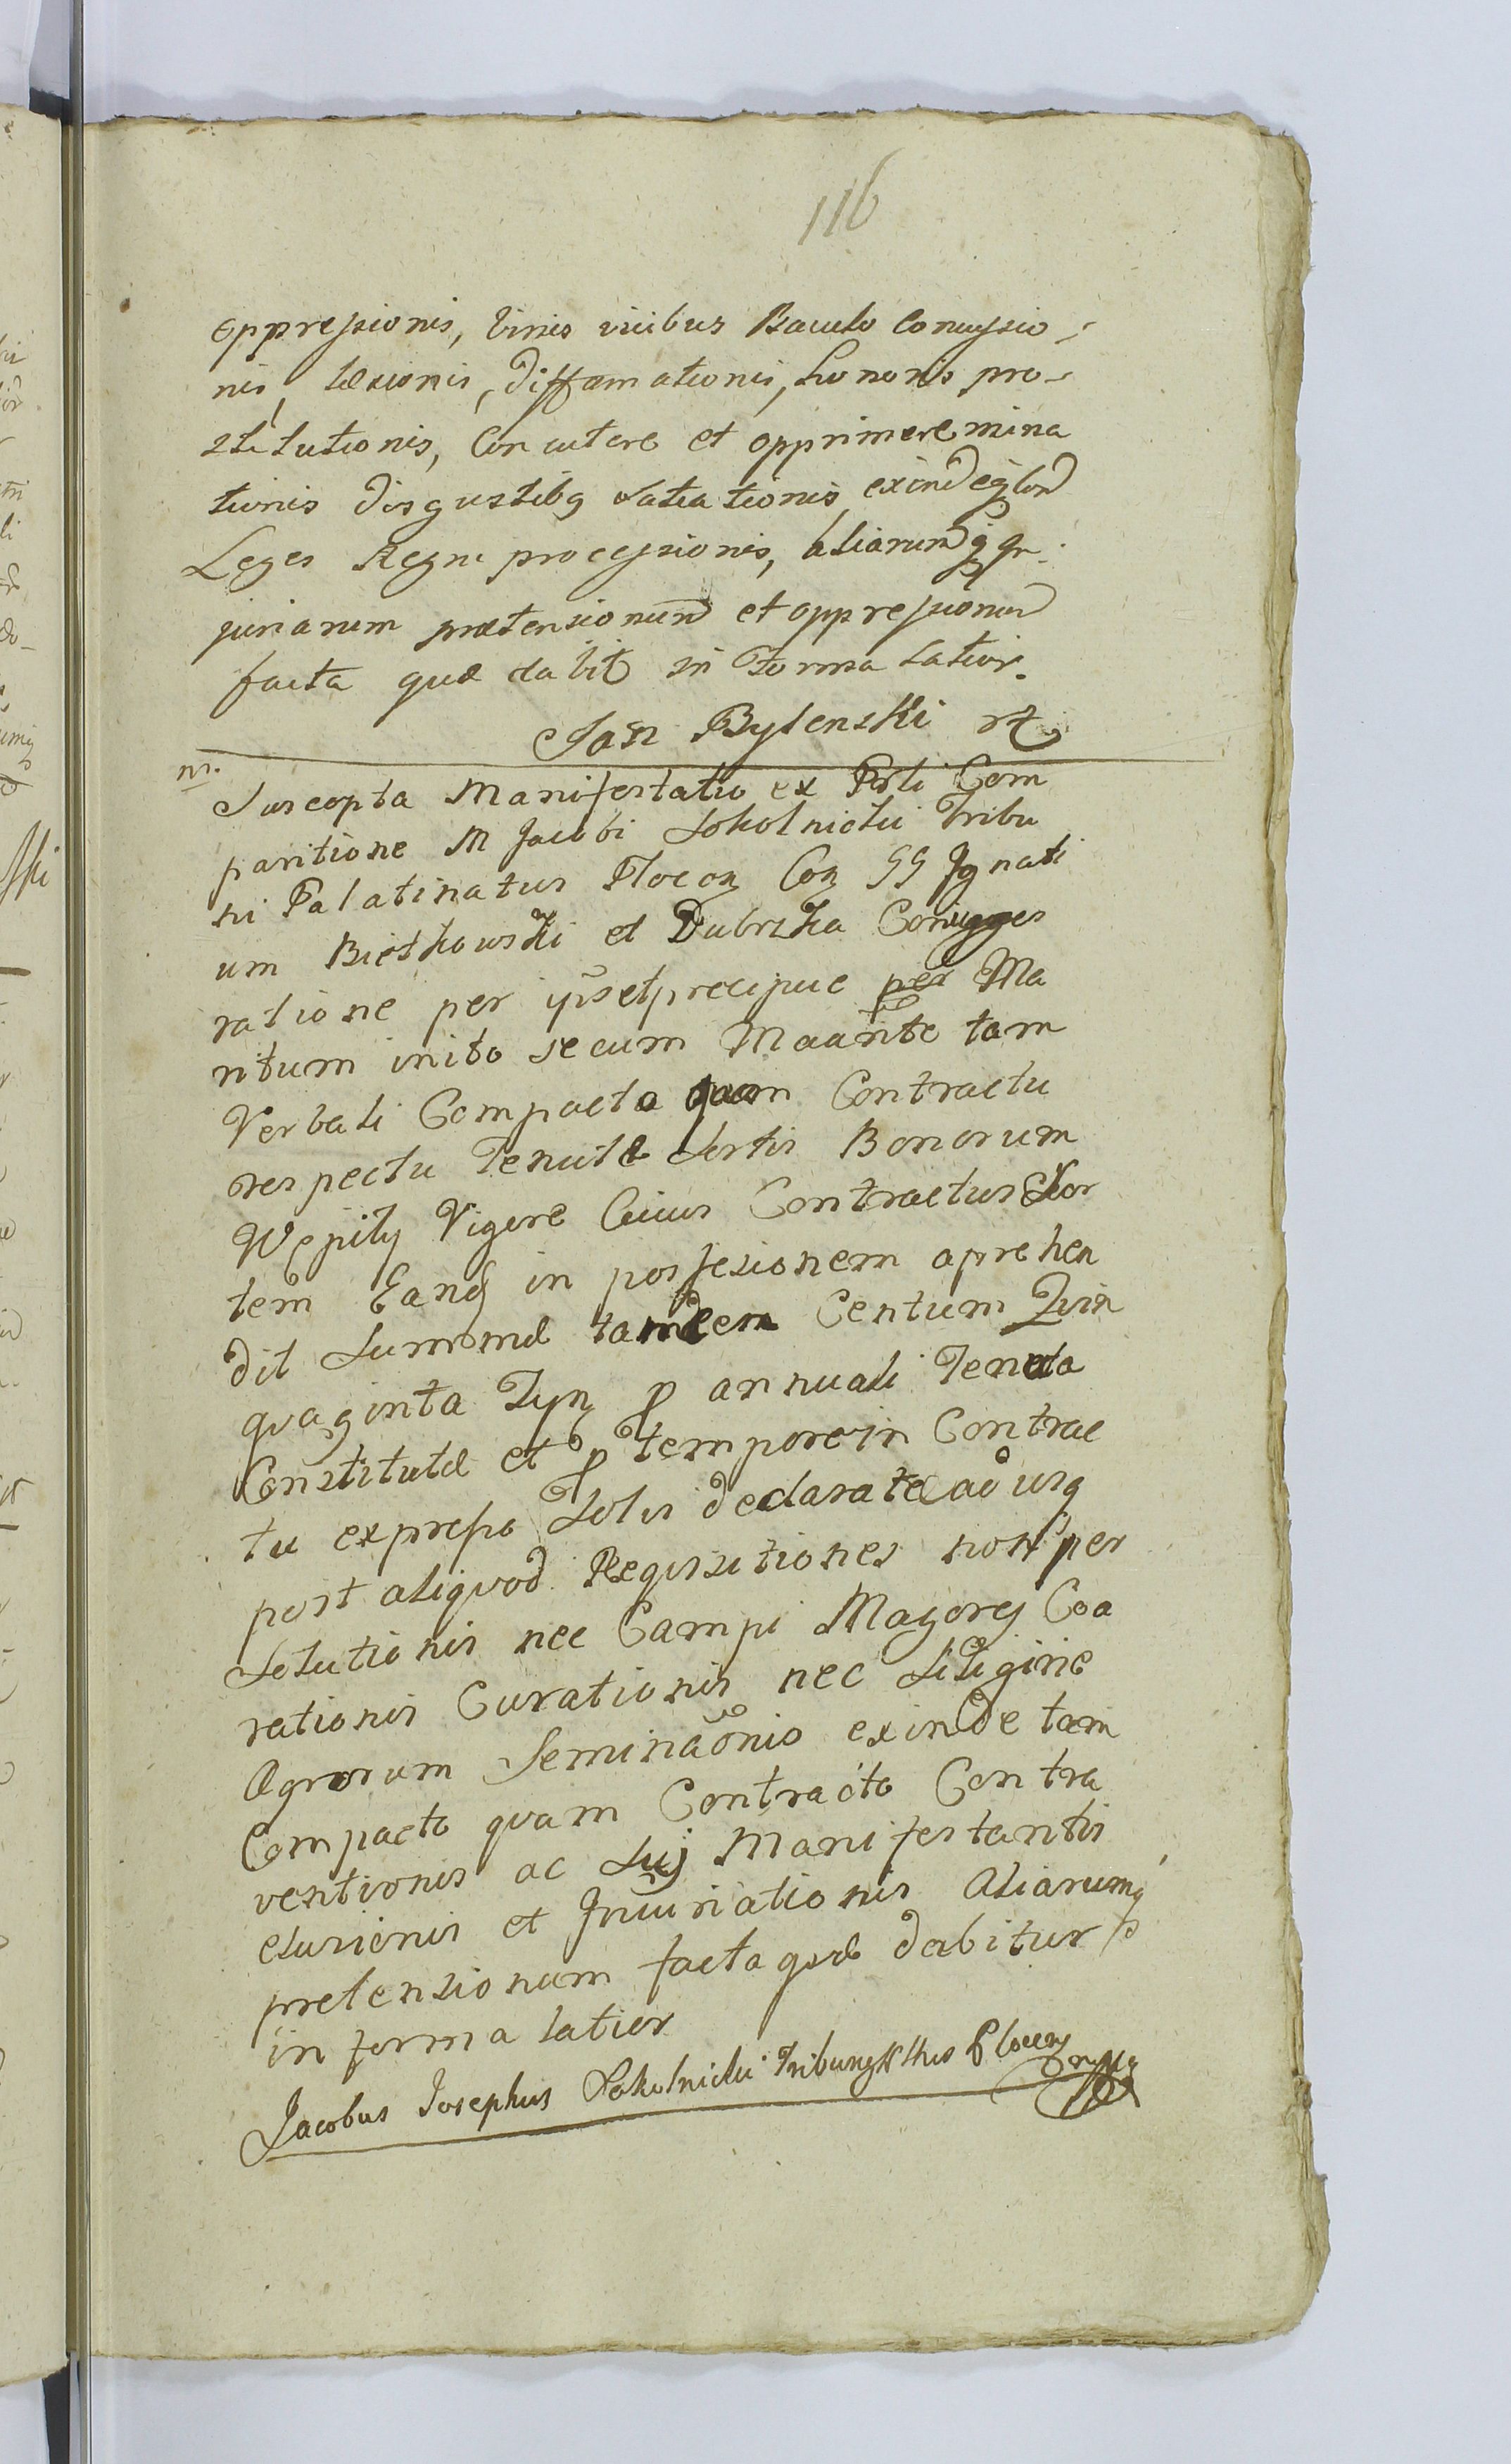 116
oppressionis, binis vicibus Baculo concussio-
nis, læsionis, diffamationis, honoris pro-
stitutionis, Concutere et opprimere mina
tionis disgustibq exinde
Leges Regni processionis, aliarumqq In-
juriarum prætensionum et oppressionum
facta quæ dabit in forma latior.
Jan Bylenski
nr.
Suscepta Manifestatio ex Psti Com
paritione M Jacobi Sokolnicki Tribu
ni Palatinatus Plocoz Coz GG Ignati
um Bietkowski et Dubrska Coniuges
ratione per precipue per Ma
ritum inito secum Maante tam
Verbali Compacto quam Contractu
respectu Tenutæ Sortis Bonorum
Wempiły Vigore Cuius Contractus Sor
tem Eand in possesionem aprehen
dit Summæ tandem Centum Quin
quaginta Tyn p annuali Tenuta
Constitutæ et p tempore in Contrac
tu expresso Solvi declaratæ ad usq
post aliquod Requisitiones non per
Solutionis nec Campi Majorej Coa
rationis Curationis nec Siligine
Agrorum Seminaonis exinde tam
Compacto quam Contracto Contra
ventionis ac Suj Manifestantis
elusionis et Iniuriationis Aliarumq
pretensionum facta quæ dabitur
in forma latior
Jacobus Josephus Sokolnicki Tribung Plocens